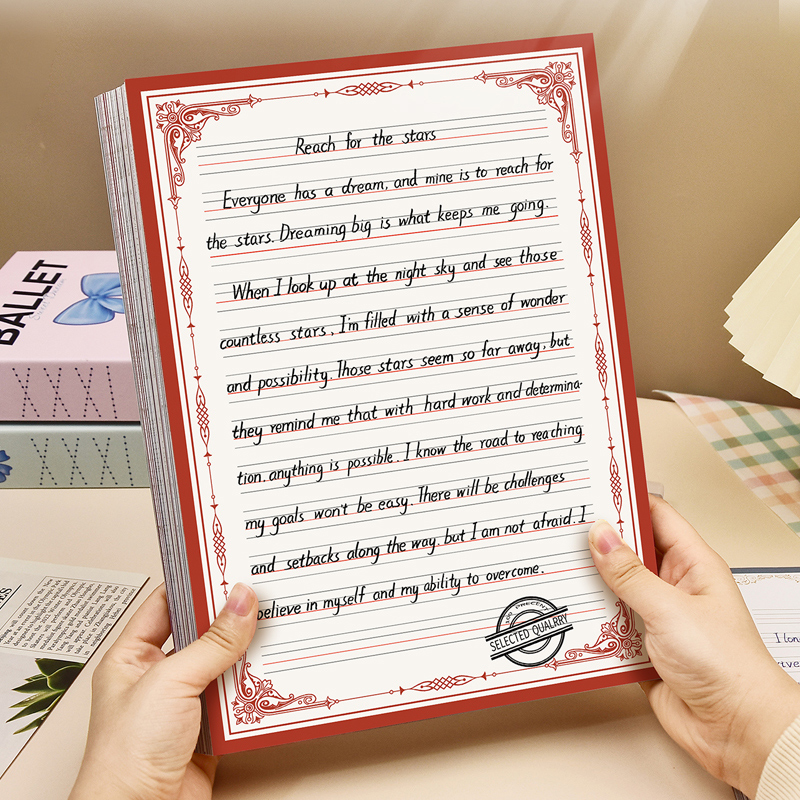 Reach for the stars
Everyone has a dream, and mine is to reach for
the stars. Dreaming big is what keeps me going.
When I look up at the night sky and see those
countless stars, I'm filled with a sense of wonder
and possibility. Those stars seem so far away, but
they remind me that with hard work and determina-
tion. anything is possible. I know the road to reaching
my goals won't be easy. There will be challenges
and setbacks along the way. but I am not afraid. I
believe in myself and my ability to overcome.
PRECENT
SELECTED QUALRRY
BALLET